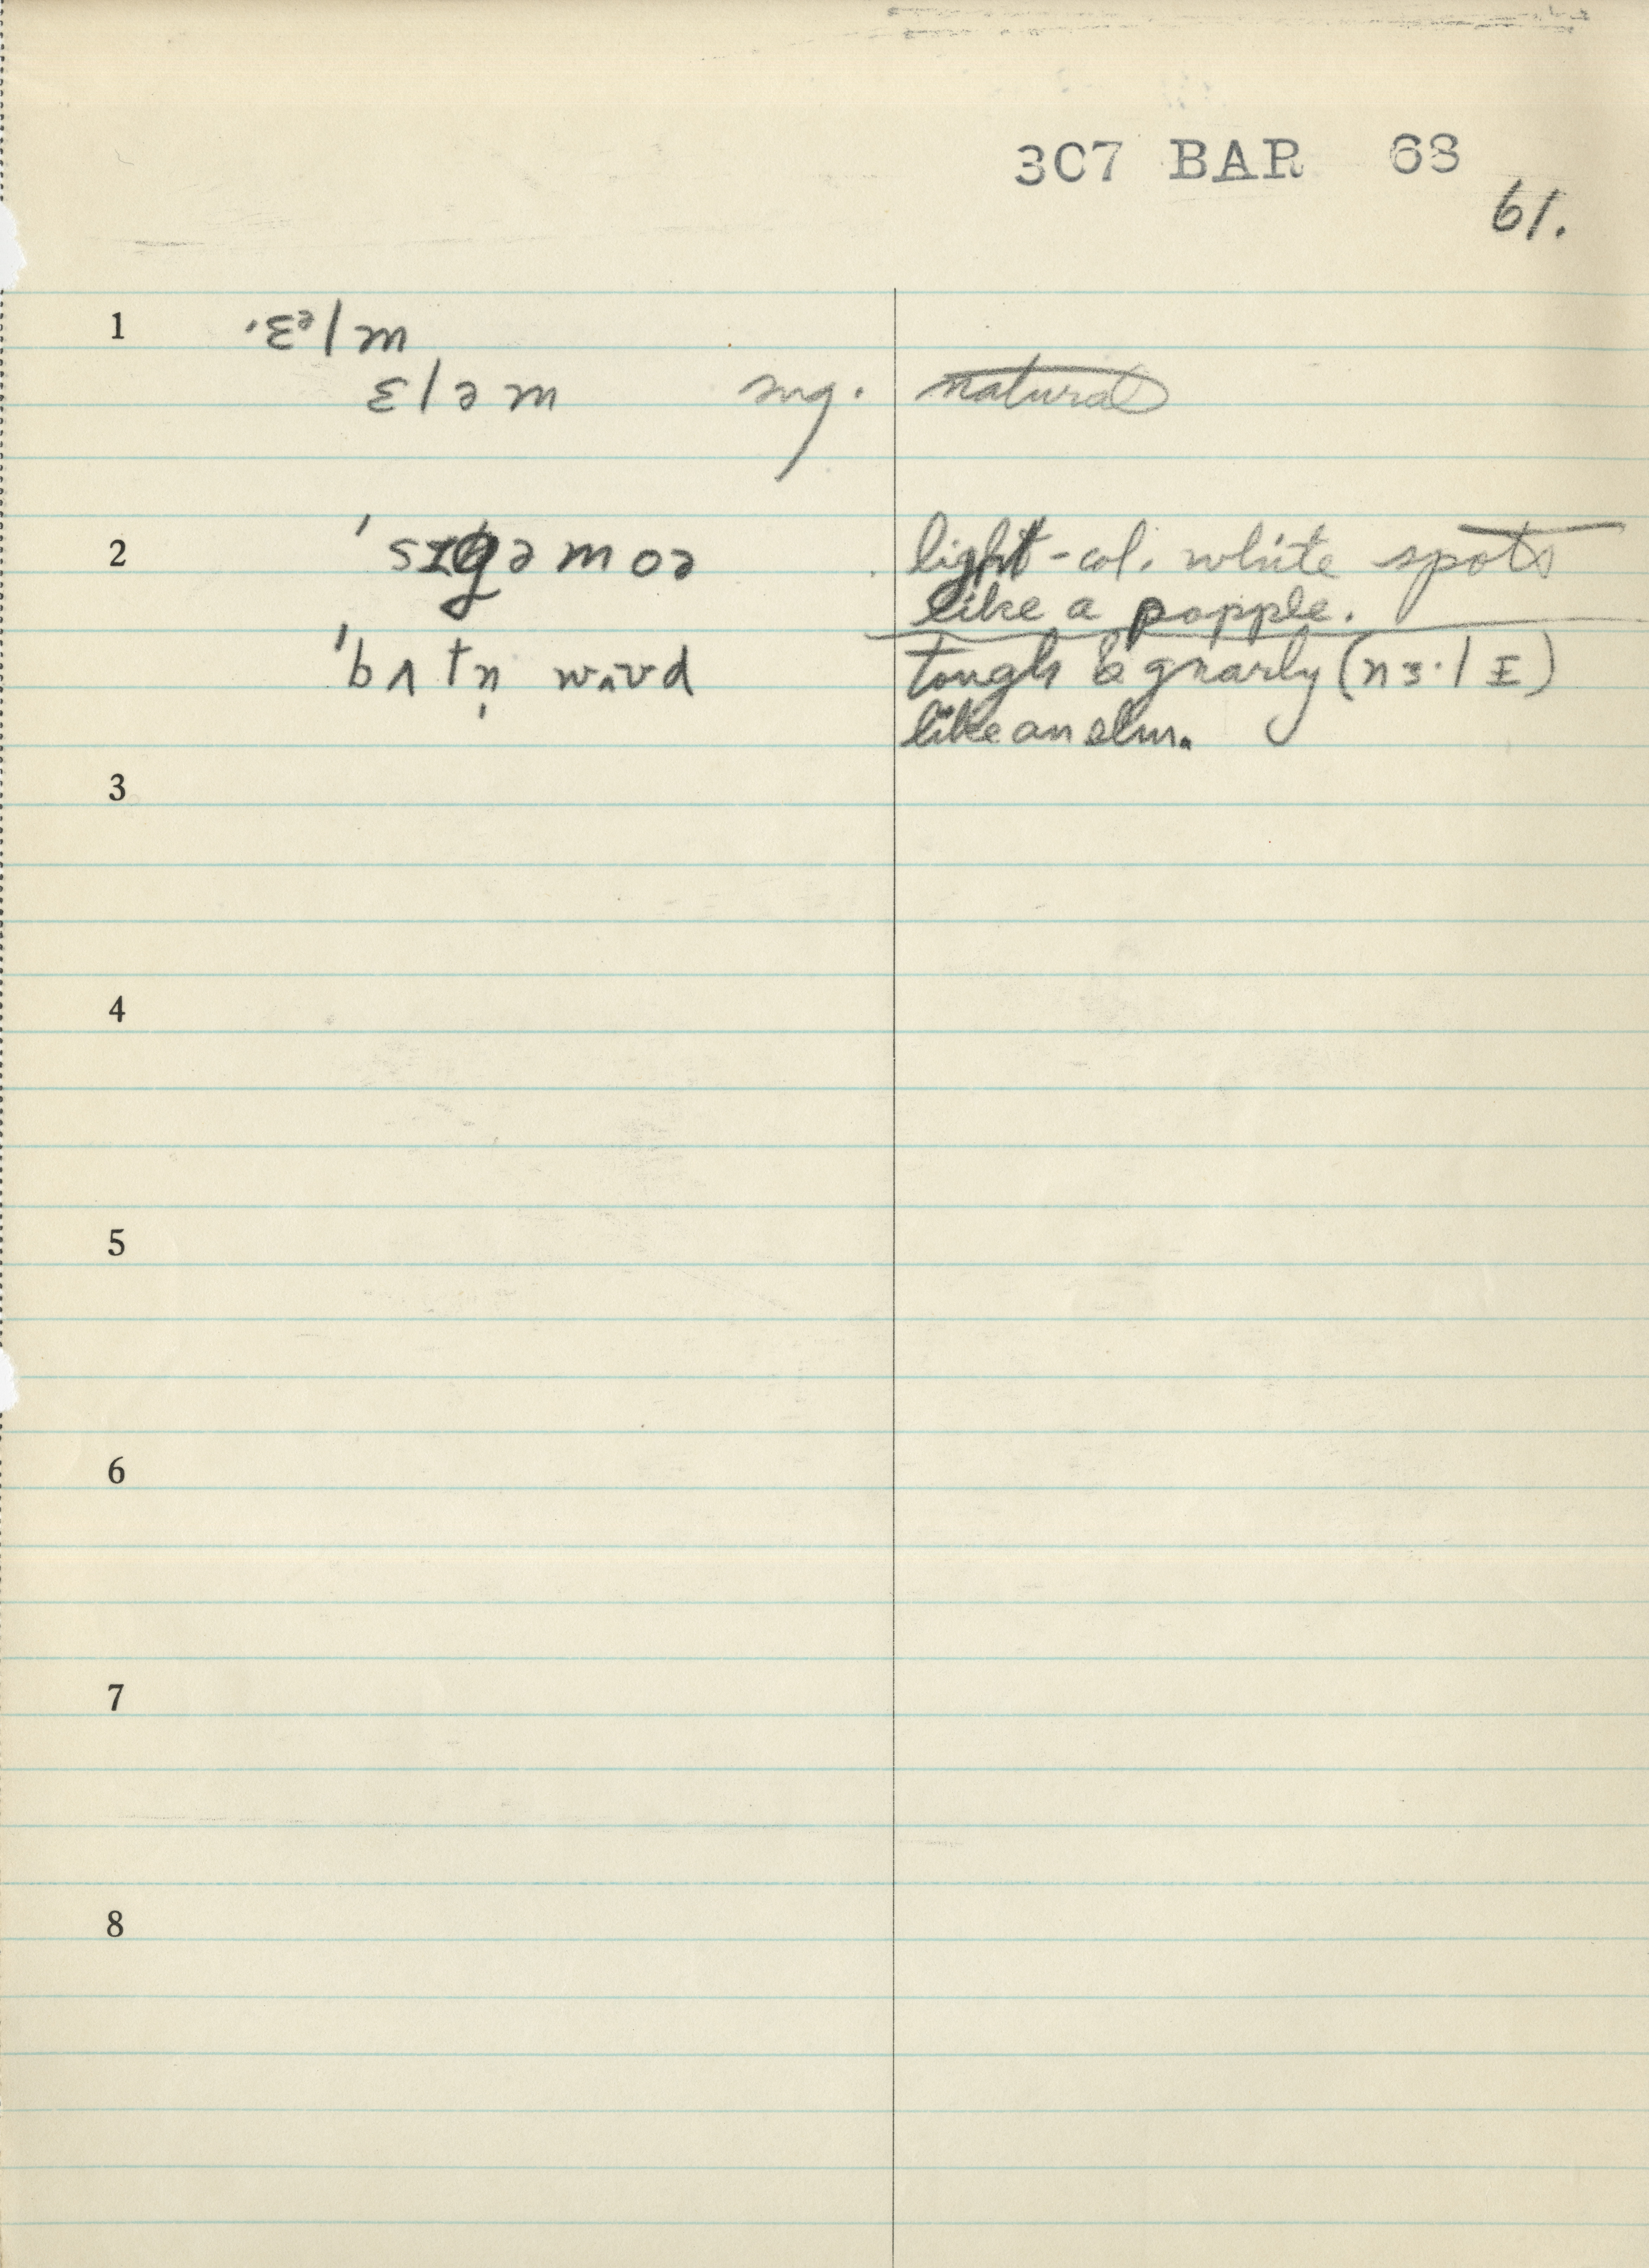 3C7 BAR 68
61.
1 ˈɛᵊlm
ɛləm sug. natural
2 ˈsɪgəmoə light-col. white spots
like a popple.
ˈbʌtn̩ wʌʊd tough & gnarly (nɜ·lɪ)
like an elm.
3
4
5
6
7
8